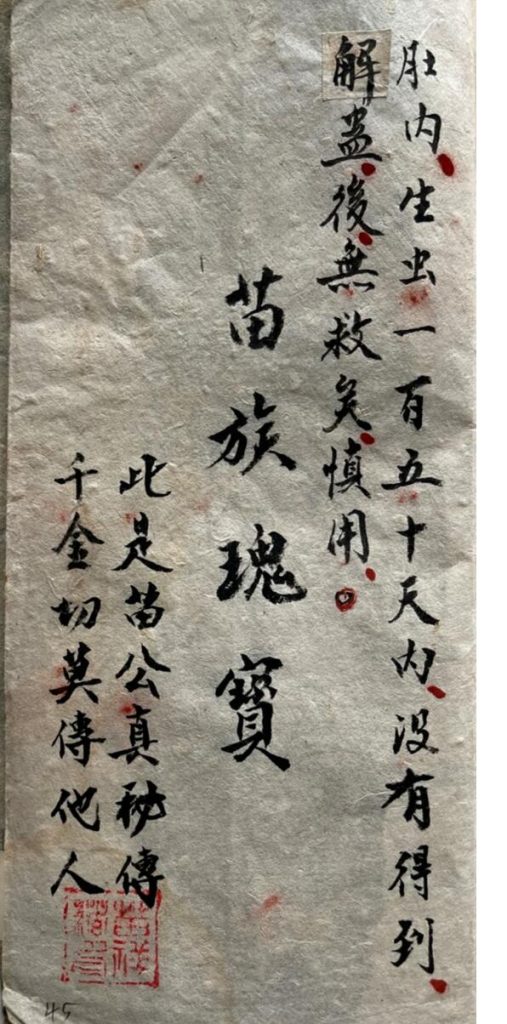 肚内、生虫一百五十天内、没有得到、
解蛊、後、無救矣、慎用。
苗族瑰寶
此是苗公真秘傳
千金切莫傳他人
45